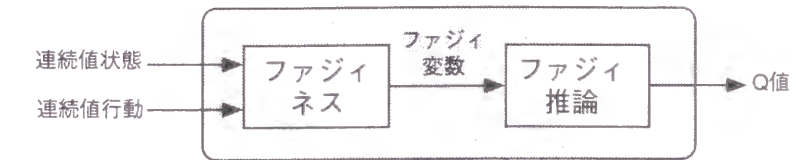 連続値状態
連続値行動
ファジィ
ネス
ファジィ
変数
ファジィ
推論
Q値